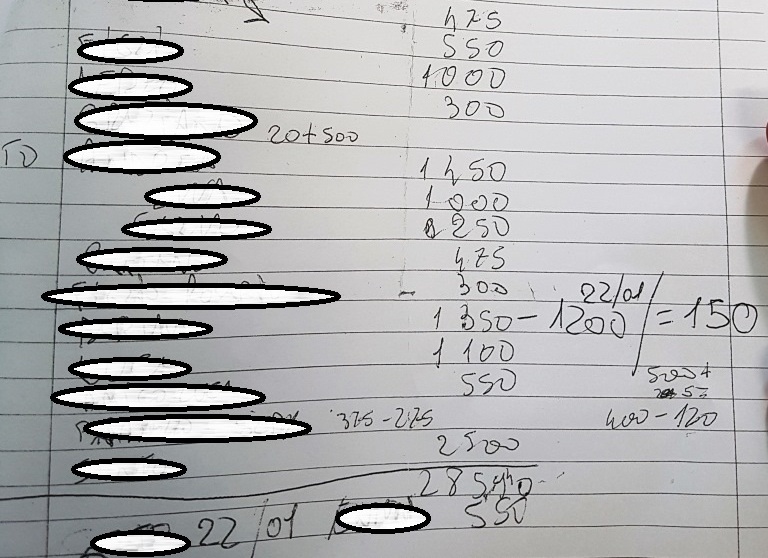 475
550
1000
300
20+500
10 1450
1000
250
475
300
22/01
1350-1200 = 150
1100
550
500+
375-275 400-120
2500
22/01 550